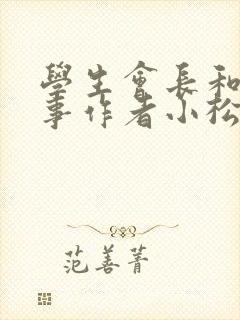 學生會長和
事作者小松
范善菁